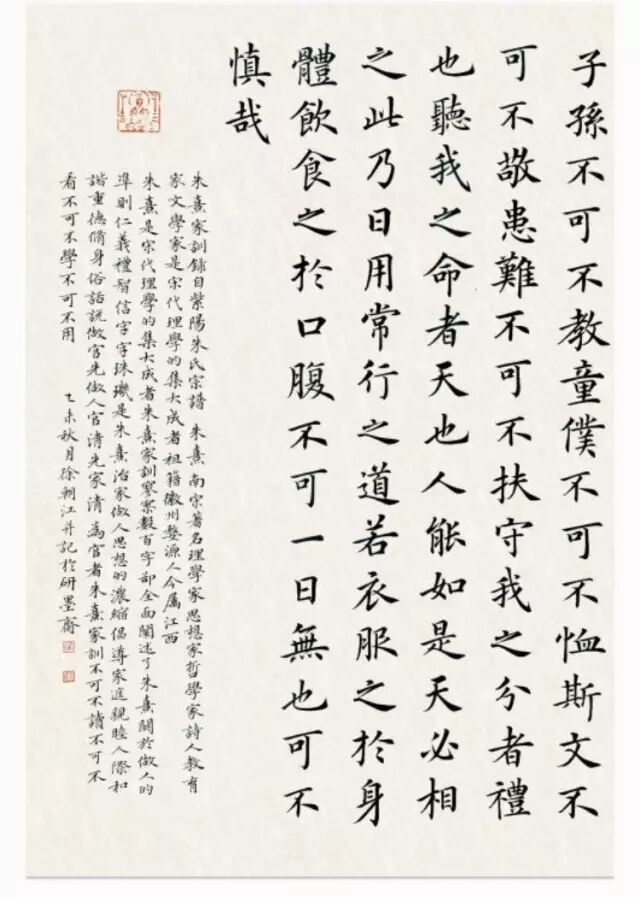 子孫不可不教童僕不可不恤斯文不
可不敬患難不可不扶守我之分者禮
也聽我之命者天也人能如是天必相
之此乃日用常行之道若衣服之於身
體飲食之於口腹不可一日無也可不
慎哉
朱熹家訓錄自紫陽朱氏宗譜 朱熹南宋著名理學家思想家哲學家詩人教育
家文學家是宋代理學的集大成者祖籍徽州婺源人今屬江西
朱熹是宋代理學的集大成者朱熹家訓寥寥數百字卻全面闡述了朱熹關於做人的
準則仁義禮智信字字珠璣是朱熹治家做人思想的濃縮倡導家庭親睦人際和
諧重德脩身俗話說做官先做人官清先家清為官者朱熹家訓不可不讀不可不
看不可不學不可不用 乙未秋月徐朝江并記於研墨齋